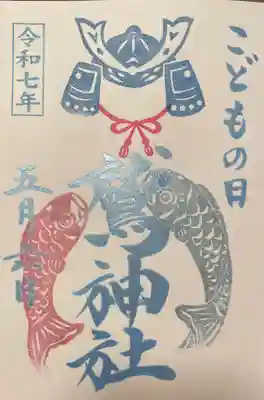 こどもの日
鷲神社
令和七年
五月六日